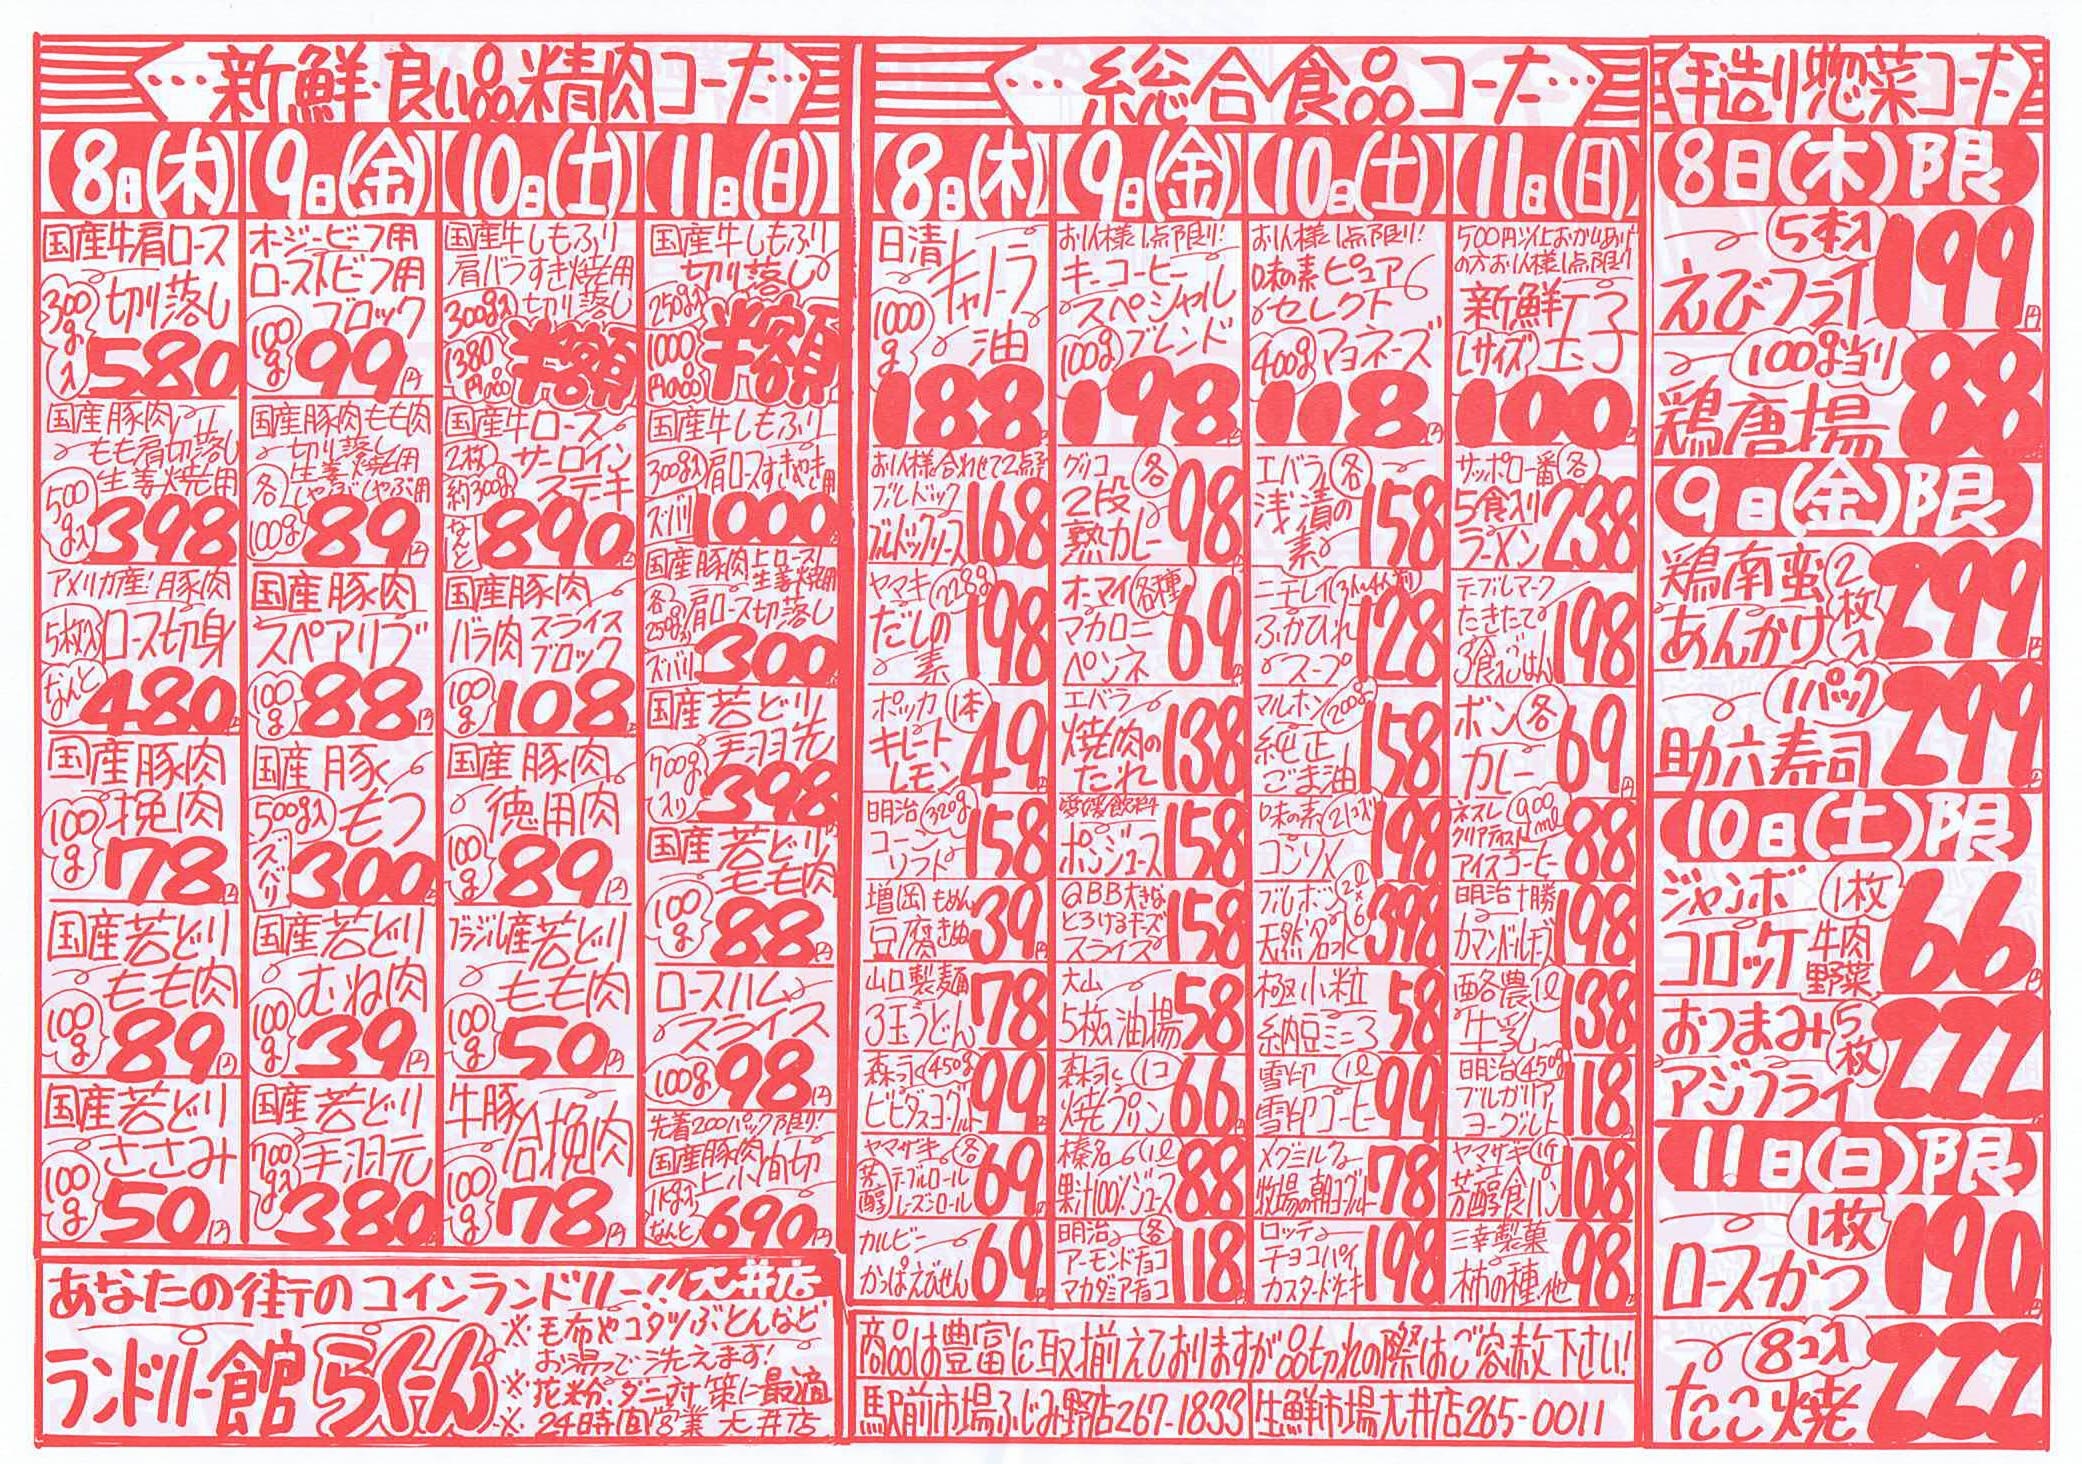 …新鮮・良い品精肉コーナー…
8日(木)
国産牛肩ロース
切り落し
300g入
580
国産豚肉
もも肩切落し
生姜焼用
500g入
398
アメリカ産!豚肉
5枚入
ロース切身
なんと
480円
国産豚肉
挽肉
100g
78円
国産若どり
もも肉
100g
89円
国産若どり
ささみ
100g
50円
9日(金)
オージービーフ用
ローストビーフ用
ブロック
100g
99円
国産豚肉もも肉
切り落し
生姜焼用
しゃぶしゃぶ用
各100g
89円
国産豚肉
スペアリブ
100g
88円
国産豚
500g入
もつ
ズバリ
300円
国産若どり
むね肉
100g
39円
国産若どり
700g入
手羽元
380円
10日(土)
国産牛しもふり
肩バラすき焼用
300g入 切り落し
1380円の品
半額
国産牛ロース
2枚 サーロイン
約300g ステーキ
なんと
890円
国産豚肉
バラ肉 スライス
ブロック
100g
108円
国産豚肉
徳用肉
100g
89円
ブラジル産若どり
もも肉
100g
50円
牛豚
合挽肉
100g
78円
11日(日)
国産牛しもふり
切り落し
250g入
1000円の品
半額
国産牛しもふり
300g入 肩ロースすきやき用
ズバリ
1000円
国産豚肉 上ロース
生姜焼用
各250g入
肩ロース切落し
ズバリ
300円
国産若どり
手羽先
700g入り
398円
国産若どり
もも肉
100g
88円
ロースハム
スライス
100g
98円
先着200パック限り!
国産豚肉
1kg入 上小間切
なんと
690円
あなたの街のコインランドリー!!大井店
ランドリー館らくーん
※毛布やコタツぶとんなど
お湯で洗えます!
※花粉、ダニ対策に最適
※24時間営業 大井店
…総合食品コーナー…
8日(木)
日清
キャノーラ
1000g
油
188円
お1人様合わせて2点
ブルドック
ブルドックソース
168円
ヤマキ 228g
だしの
素
198円
ポッカ 1本
キレート
レモン
49円
明治 320g
コーン
ソフト
158円
増岡 もめん
豆腐 きぬ
39円
山口製麺
3玉うどん
78円
森永 450g
ビヒダスヨーグルト
99円
ヤマザキ 各
芳醇
テーブルロール
レーズンロール
69円
カルビー
かっぱえびせん
69円
9日(金)
お1人様1点限り!
キーコーヒー
スペシャル
ブレンド
100g
198円
グリコ 各
2段
熟カレー
98円
オーマイ 各種
マカロニ
ペンネ
69円
エバラ
焼肉の
たれ
138円
愛媛飲料
ポンジュース
158円
QBB大きな
とろけるチーズ
スライス
158円
大山
5枚油揚
58円
森永 1コ
焼プリン
66円
榛名 1ℓ
果汁100%ジュース
88円
明治 各
アーモンドチョコ
マカダミアチョコ
118円
10日(土)
お1人様1点限り!
味の素 ピュア
セレクト
400g マヨネーズ
118円
エバラ 各
浅漬の
素
158円
ニチレイ 3人~4人前
ふかひれ
スープ
128円
マルホン 200g
純正
ごま油
158円
味の素 21コ入
コンソメ
198円
ブルボン 2ℓ×6
天然名水
398円
極小粒
納豆ミニ3
58円
雪印 1ℓ
雪印コーヒー
99円
メグミルク
牧場の朝ヨーグルト
78円
ロッテ
チョコパイ
カスタードケーキ
198円
11日(日)
500円以上お買いあげ
の方お1人様1点限り
新鮮
Lサイズ 玉子
100円
サッポロ一番 各
5食入り
ラーメン
238円
テーブルマーク
たきたて
3食ごはん
198円
ボン 各
カレー
69円
ネスレ 900ml
クリアテイスト
アイスコーヒー
88円
明治十勝
カマンベールチーズ
198円
酪農 1ℓ
牛乳
138円
明治 450g
ブルガリア
ヨーグルト
118円
ヤマザキ 1斤
芳醇食パン
108円
三幸製菓
柿の種、他
98円
商品は豊富に取揃えておりますが品切れの際はご容赦下さい!
駅前市場ふじみ野店267-1833 生鮮市場大井店265-0011
手造り惣菜コーナー
8日(木)限
5本入
えびフライ
199円
100g当り
鶏唐揚
88
9日(金)限
鶏南蛮
あんかけ
2枚入
299円
1パック
助六寿司
299円
10日(土)限
ジャンボ 1枚
コロッケ 牛肉
野菜
66円
おつまみ 5枚
アジフライ
222
11日(日)限
1枚
ロースかつ
190円
8コ入
たこ焼
222